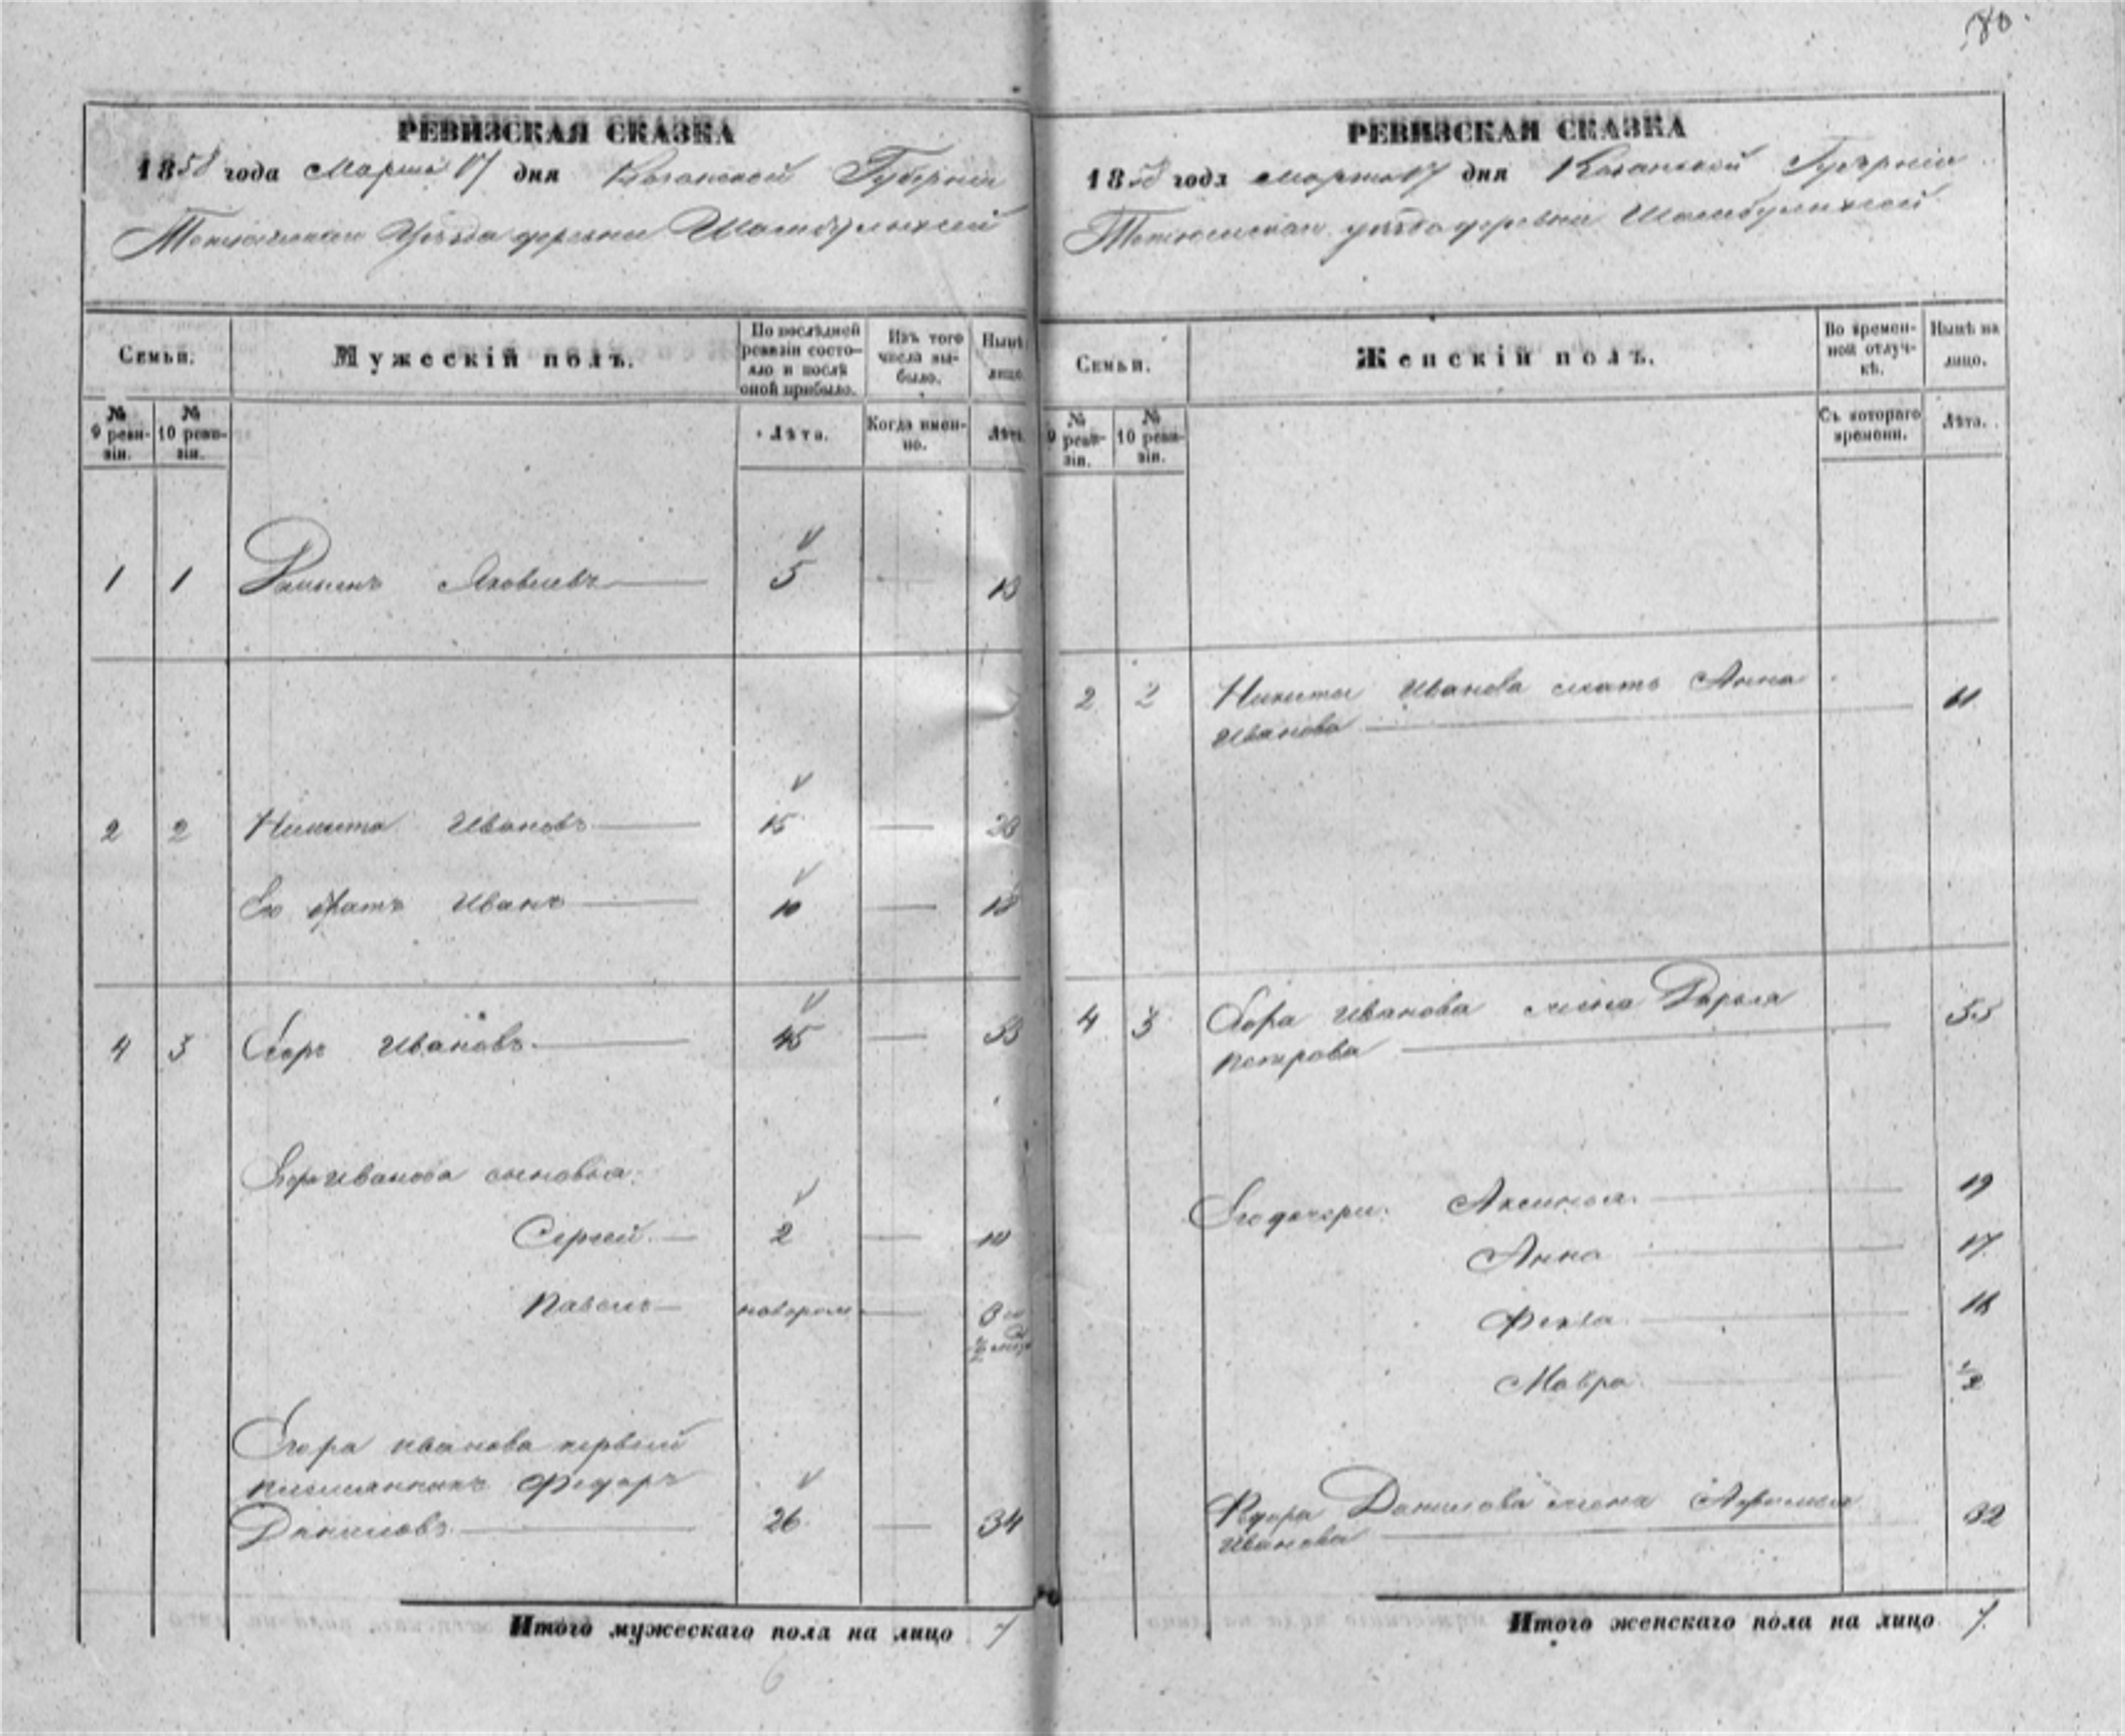 80.
РЕВИЗСКАЯ СКАЗКА
1858 года Марта 17 дня Казанской Губерніи
Тетюшскаго Уѣзда деревни
Семьи.
№ 9 ревизіи.
№ 10 ревизіи.
Мужескій полъ.
По послѣдней
ревизіи состо-
яло и послѣ
оной прибыло.
Лѣта.
Изъ того
числа вы-
было.
Когда имен-
но.
Нынѣ
лицо.
Лѣта.
1 1 Яковлевъ 5 13
2 2 Никита Ивановъ 15 23
Его братъ Иванъ 10 18
4 3 Егоръ Ивановъ 45 53
Егора Иванова сыновья:
Сергей 2 10
Павелъ новорож.
Егора Иванова первый
племянникъ Федоръ
Даниловъ 26 34
Итого мужескаго пола на лицо 7
6
РЕВИЗСКАЯ СКАЗКА
1858 года марта 17 дня Казанской Губерніи
Тетюшскаго уѣзда деревни
Семьи.
№ 9 ревизіи.
№ 10 ревизіи.
Женскій полъ.
Во времен-
ной отлуч-
кѣ.
Съ котораго
времени.
Нынѣ на
лицо.
Лѣта.
2 2 Никиты Иванова мать Анна
Иванова
4 3 Егора Иванова жена Дарья 55
Петрова
Его дочери: Аксинья 19
Анна 17
Фекла
Мавра 1/2
Федора Данилова жена 32
Иванова
Итого женскаго пола на лицо 7.